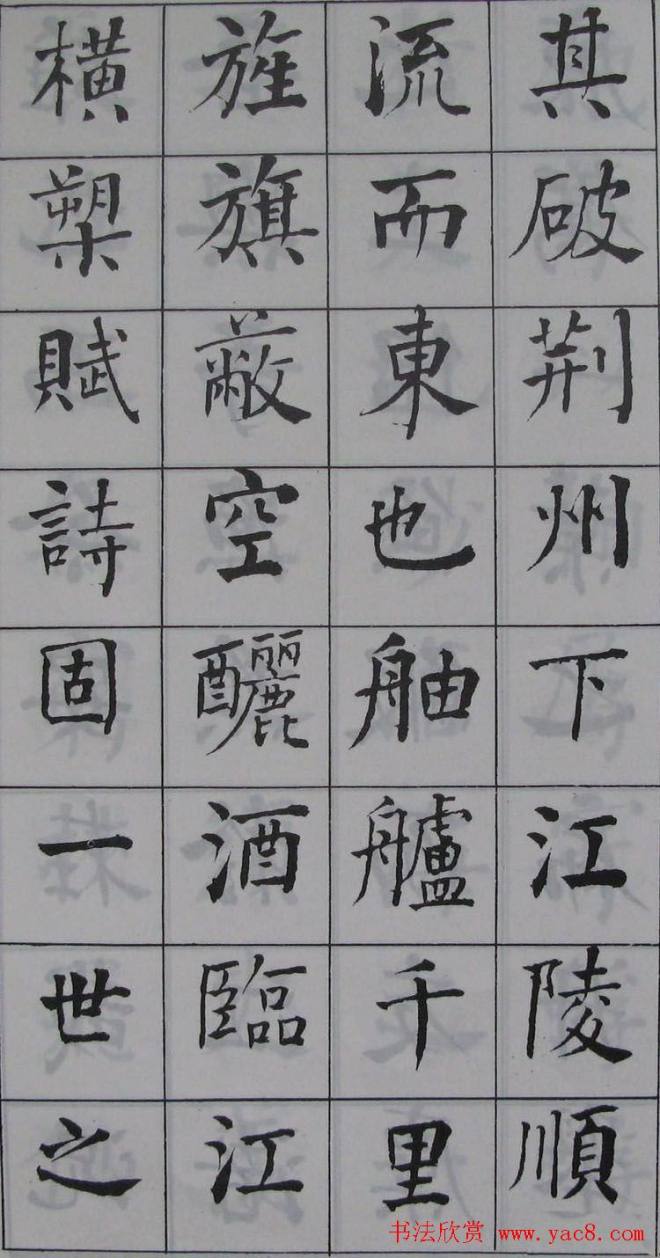 其破荆州下江陵順
流而東也舳艫千里
旌旗蔽空釃酒臨江
横槊賦詩固一世之
书法欣赏 www.yac8.com